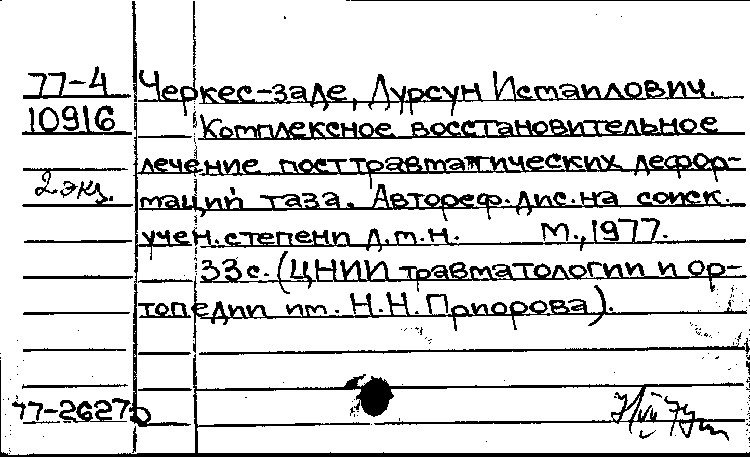 77-4 Черкес-заде, Дурсун Исмаилович.
10916 Комплексное восстановительное
лечение посттравматических дефор-
2 экз. маций таза. Автореф. дис. на соиск.
учен. степени д.м.н. М., 1977.
33с. (ЦНИИ травматологии и ор-
топедии им. Н.Н. Приорова).
77-26275